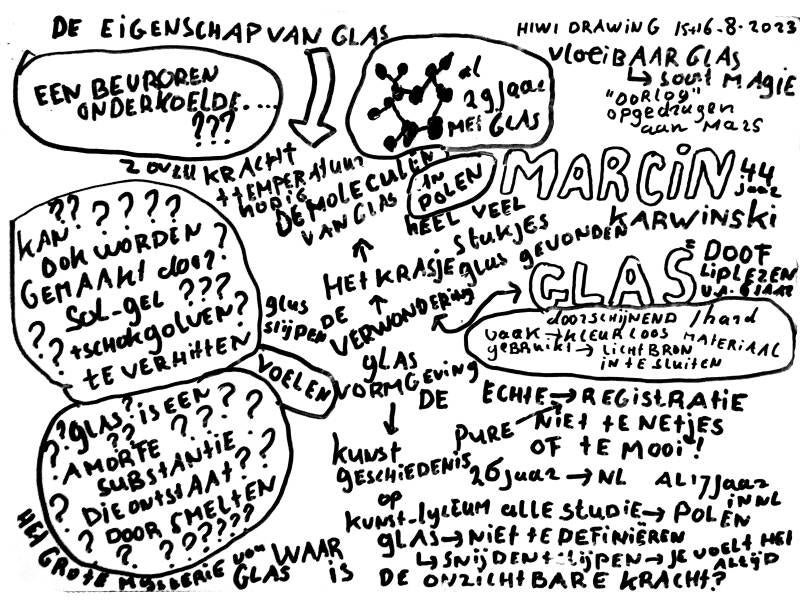 DE EIGENSCHAP VAN GLAS
HIWI DRAWING 15+16-8-2023
EEN BEVROREN
ONDERKOELDE....
???
al
29 jaar
MET GLAS
VLOEIBAAR GLAS
↳ soort MAGIE
"OORLOG"
opgedragen
aan MARS
ZOVEEL KRACHT
+TEMPERATUUR
NODIG
DE MOLECULEN
VAN GLAS
IN
POLEN
MARCIN 44
jaar
KARWINSKI
HEEL VEEL
STUKJES
glas GEVONDEN
HET KRASJE
DE
VERWONDERING
?? ? ? ? ?
KAN
OOK WORDEN ?
GEMAAKT door?
SOL-gel ???
? +SCHOKGOLVEN?
?? TE VERHITTEN
glas
slijpen
VOELEN
GLAS = DOOF
LIPLEZEN
V.A. 6 JAAR
doorschijnend / hard
vaak → KLEURLOOS MATERIAAL
gebruikt → LICHTBRON
IN TE SLUITEN
glas
VORMGEVING
DE ECHTE → REGISTRATIE
PURE NIET TE NETJES
OF TE MOOI!
?? glas? IS EEN ?
AMORFE
SUBSTANTIE
DIE ONTSTAAT?
DOOR SMELTEN
? ? ??????
kunst
geschiedenis
26 jaar → NL AL 17 jaar
IN NL
op
kunst-lyceum alle studie → POLEN
glas → NIET TE DEFINIËREN
↳ SNIJDEN+SLIJPEN → JE VOELT HET
ALTIJD
HET GROTE MYSTERIE van WAAR
GLAS IS DE ONZICHTBARE KRACHT?